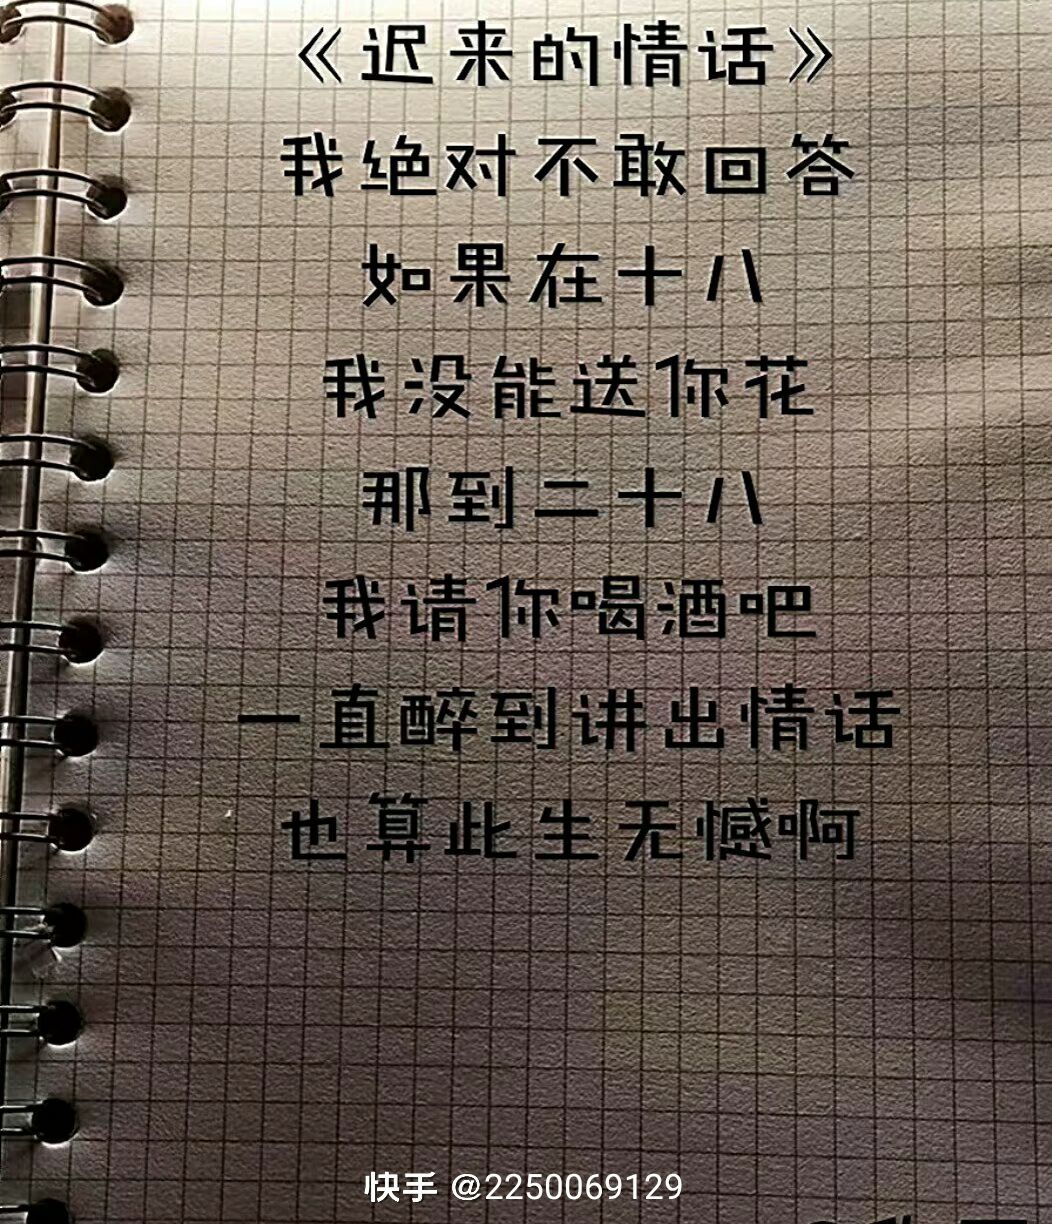 《迟来的情话》
我绝对不敢回答
如果在十八
我没能送你花
那到二十八
我请你喝酒吧
一直醉到讲出情话
也算此生无憾啊
快手 @2250069129